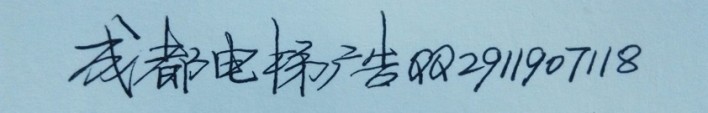 成都电梯广告QQ2911907118